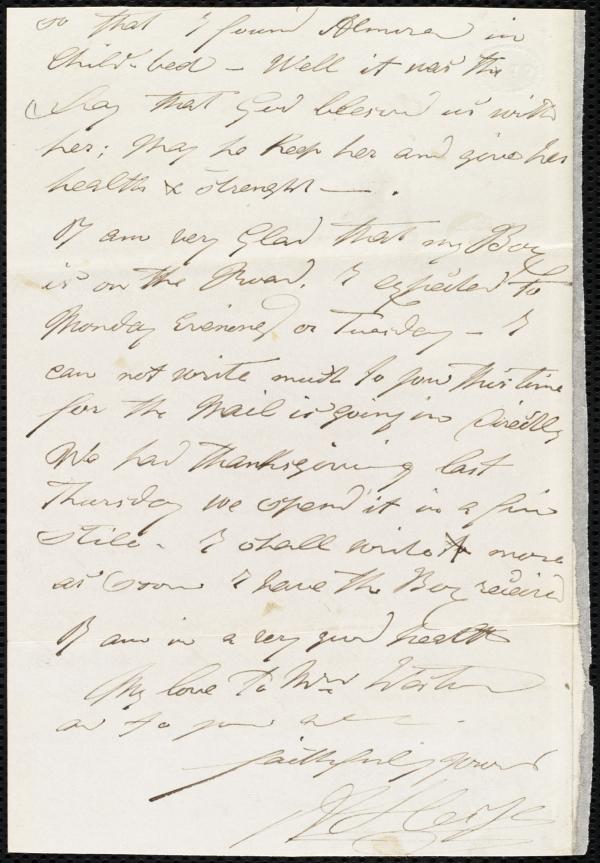 so that I found Almira in
Child-bed - Well it was the
Day that God blessed us with
her; May he Keep her and give her
health & strenght -.
I am very Glad that my Box
is on the Road. I expected to
Monday Evening or Tuesday - I
can not write much to you this time
for the Mail is going in directly
We had thanksgiving last
Thursday we spend it in a fine
stile. I shall write more
as soon I have the Box receivd
I am in a very good health
My love to Mrs Weston
as to you all.
faithfully yours